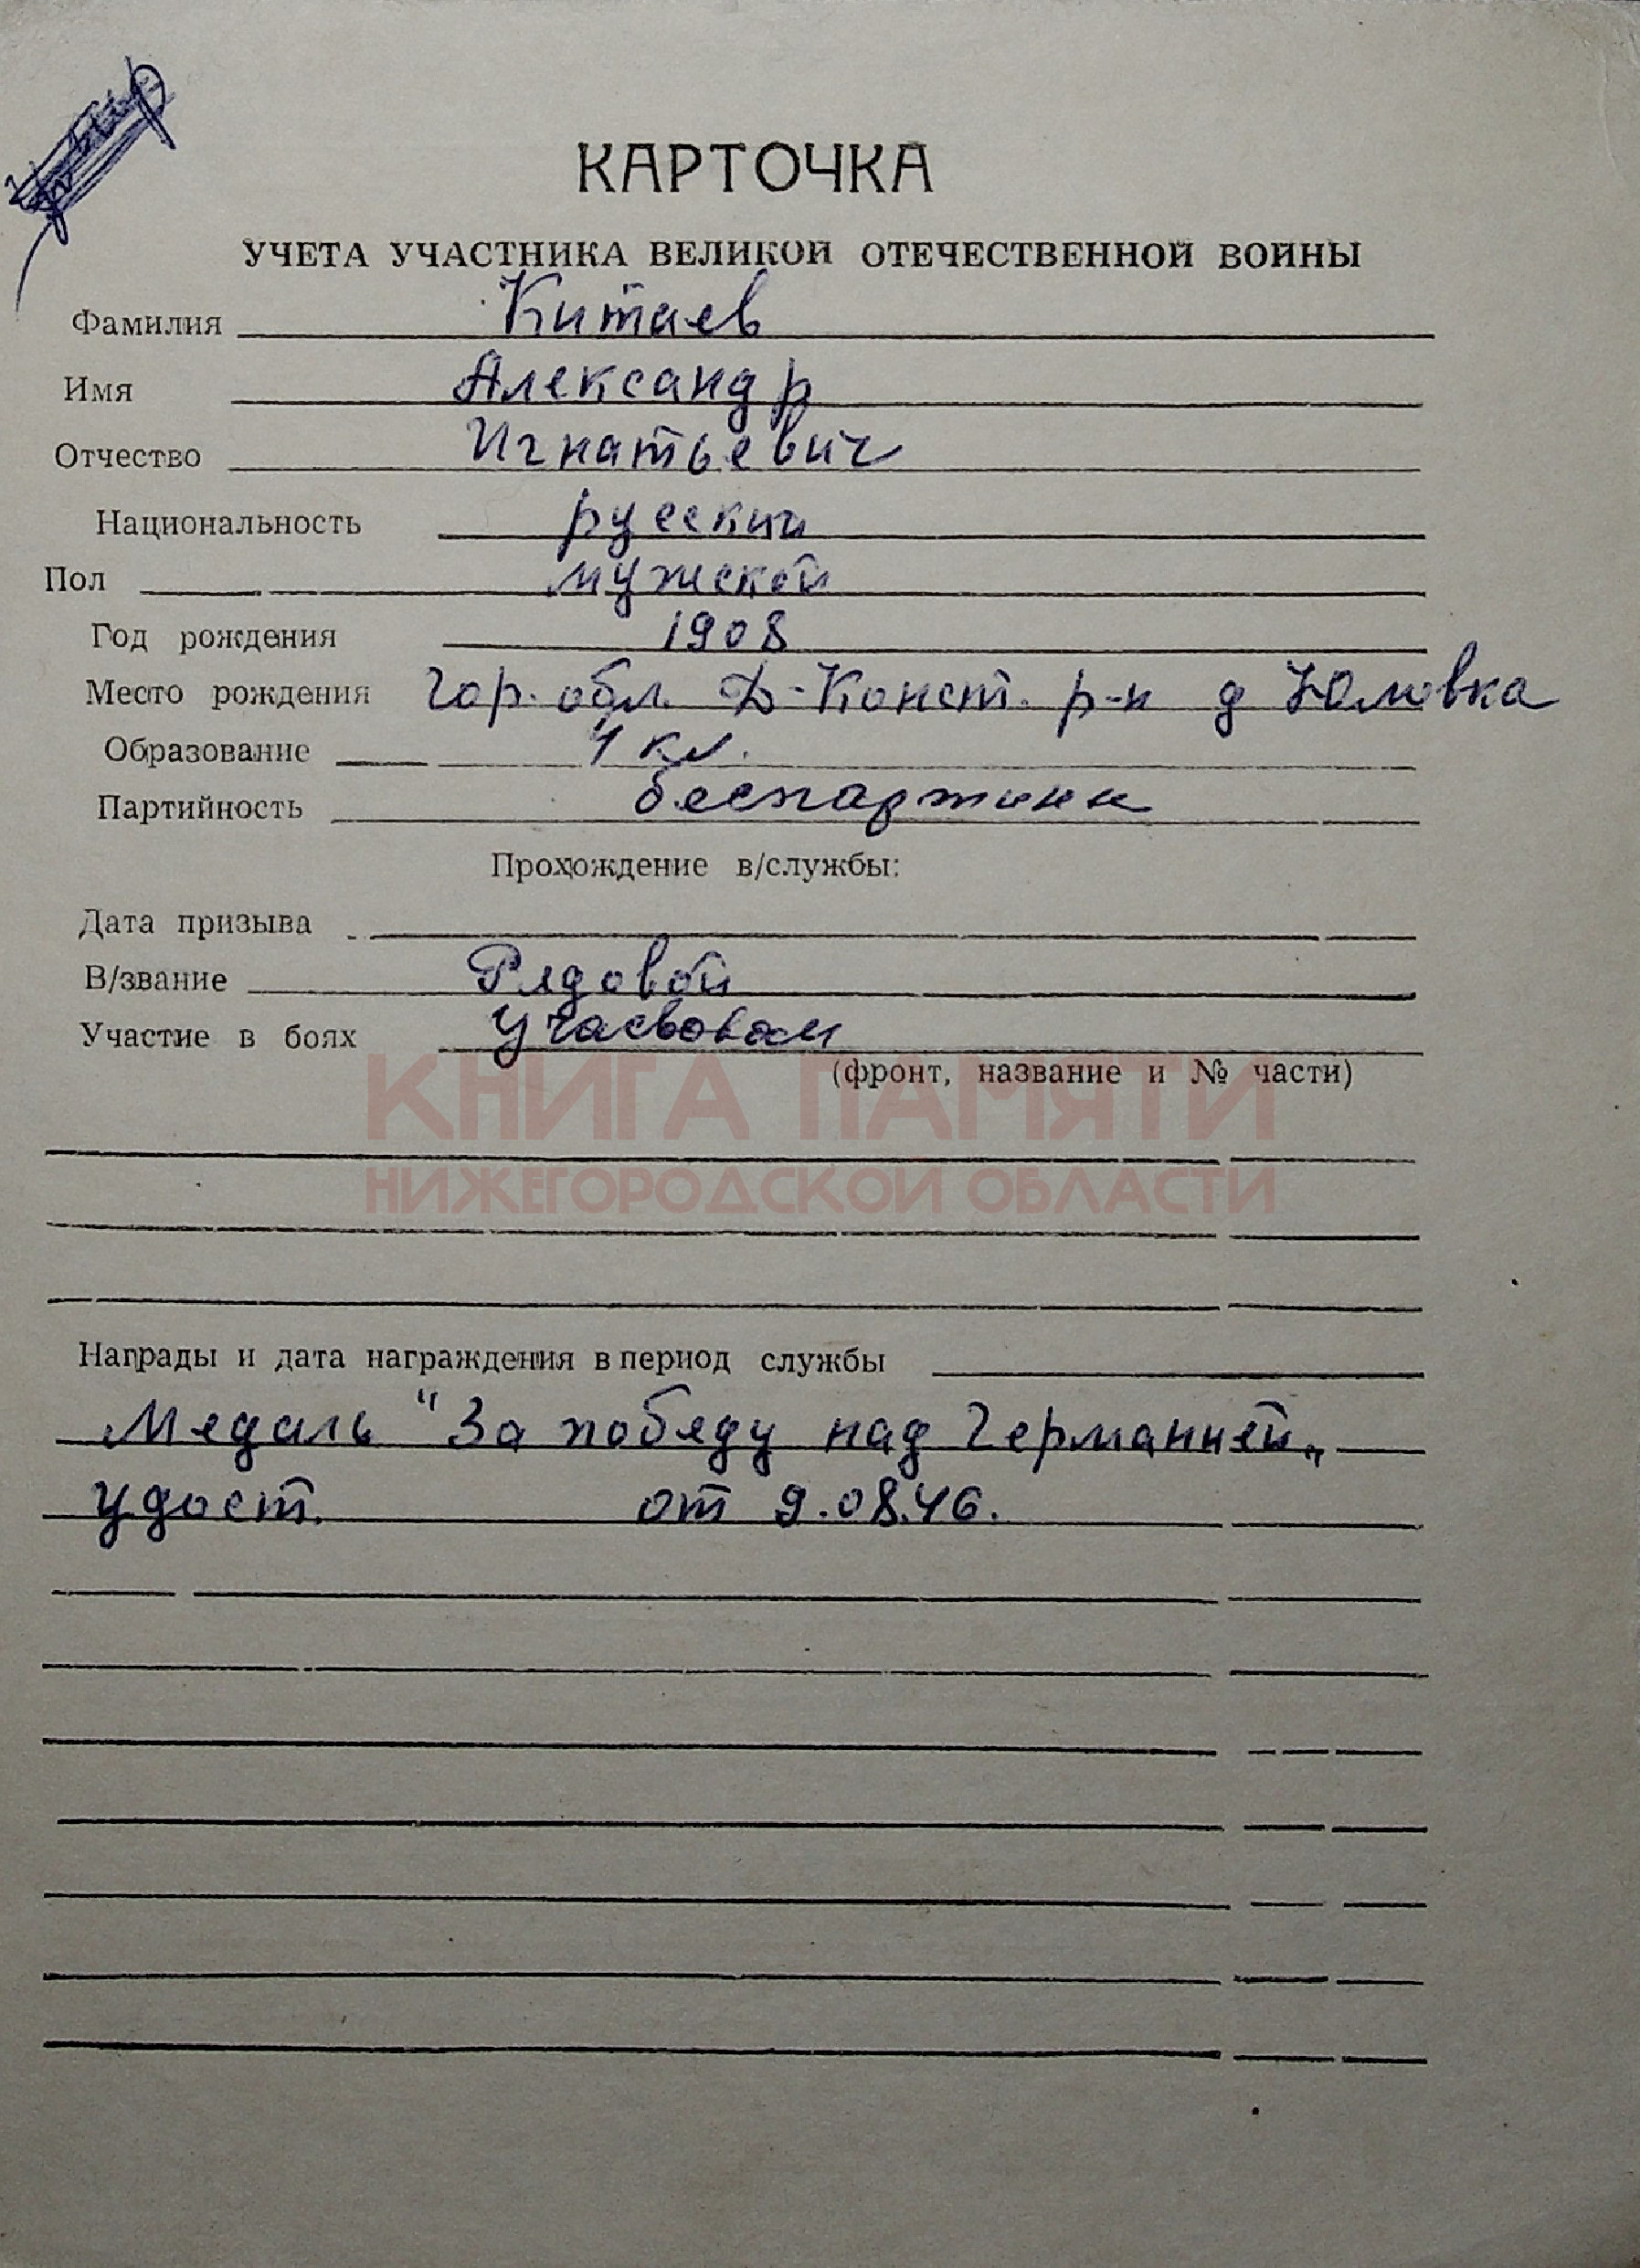 КАРТОЧКА
УЧЕТА УЧАСТНИКА ВЕЛИКОЙ ОТЕЧЕСТВЕННОЙ ВОЙНЫ
Фамилия Китаев
Имя Александр
Отчество Игнатьевич
Национальность русский
Пол мужской
Год рождения 1908
Место рождения Гор. обл. Д-Конст. р-н д Юловка
Образование 4 кл.
Партийность
Прохождение в/службы:
Дата призыва
В/звание Рядовой
Участие в боях
(фронт, название и № части)
КНИГА ПАМЯТИ
НИЖЕГОРОДСКОЙ ОБЛАСТИ
Награды и дата награждения в период службы
Медаль "За победу над Германией„
удост. от 9.08.46.